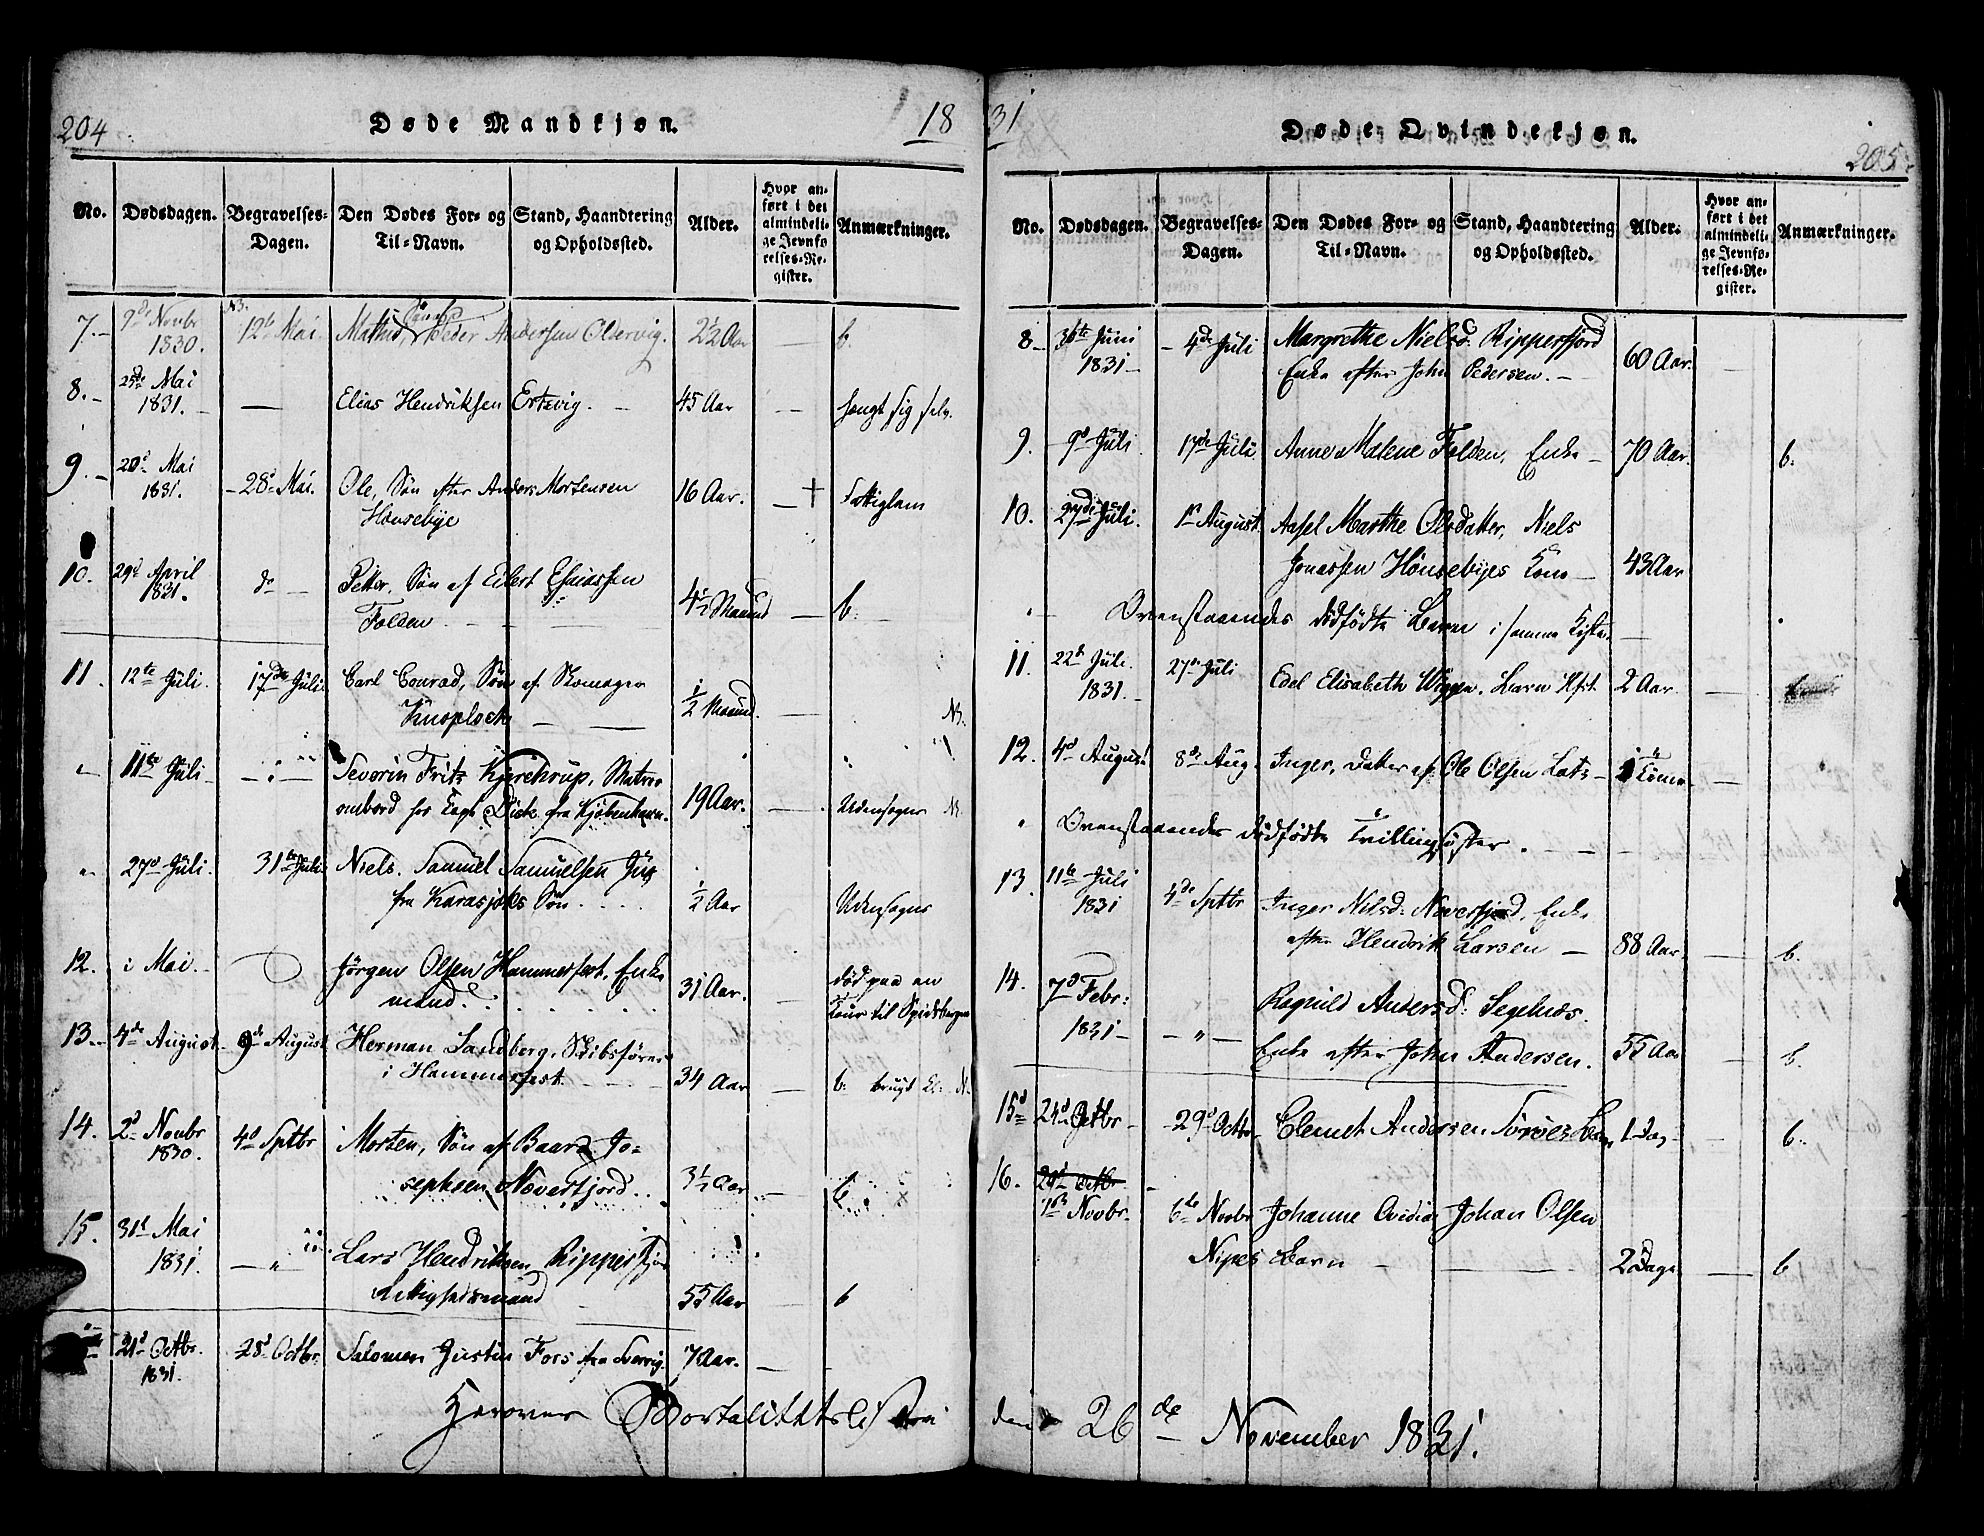 204
Døde Mandkjøn.
18
No.
Dødsdagen.
Begravelses-Dagen.
Den Dødes For- og Til-Navn.
Stand, Haandtering og Opholdssted.
Alder.
Hvor anført i det almindelige Jevnførelses-Register.
Anmærkninger.
7. 9de Novbr 1830. 12te Mai Mathis, Peder Andersen Oldervig. 2½ Aar b.
8. 25de Mai 1831. Elias Hendriksen Ertevig. 45 Aar hengt sig selv.
9. 20d Mai 1831. 28d Mai. Ole, Søn efter Anders Mortensen 16 Aar. Fattiglem
Hönsebye
10. 29d April 1831. do Petter, Søn af Eilert Esaiassen
Folden 4½ Maaned b.
11. 12te Juli. 17de Juli Carl Conrad, Søn af Skomager
Knoplock ½ Maaned. NB.
11te Juli Severin Fritz Kjerstrup, Matros
ombord hos Capt. Dick fra Kjøbenhavn. 19 Aar. Udensogns NB.
27d Juli. 31te Juli Niels Samuel Samuelsen
fra Karasjoks Søn ½ Aar Udensogns
12. i Mai. Jørgen Olsen Hammerfest, Enke
mand. 31 Aar. død paa en
Tour til Spidsbergen
13. 4de August 9de August Herman Sandberg, Skibsfører
i Hammerfest 34 Aar b. brugt
14. 2d Novbr 1830. 4d Sptbr Morten, Søn af Baard Jo-
sephsen Noverfjord 3½ Aar b.
15. 31t Mai 1831. Lars Hendriksen Ripperfjord
Rettighedsmand 55 Aar b
21d Octbr. 1831. 28d Octbr. Salomon Gustav Fors fra Sverrig. 7 Aar.
Herover Mortalitetsliste
31
Døde Qvindekjøn.
205
No.
Dødsdagen.
Begravelses-Dagen.
Den Dødes For- og Til-Navn.
Stand, Haandtering og Opholdssted.
Alder.
Hvor anført i det almindelige Jevnførelses-Register.
Anmærkninger.
8 Juni 1831 4de Juli Margrethe Nielsd. Ripperfjord
Enke efter John Pedersen. 60 Aar.
9. 9d Juli. 17de Juli. Anne Malene Folden, Enke 70 Aar. b.
10. 27de Juli. 1ste August Aasel Marthe Olsdatter, Niels
Jonassen Hönsebyes Kone 43 Aar
Ovenstaaendes dödfödte Barn i samme Kiste.
11. 22de Juli. 1831. 27de Juli Edel Elisabeth Wiggen, Barn Hft. 2 Aar.
12. 4d August 8de Aug. Inger, Datter af Ole Olsen Lats 1 Time
Ovenstaaendes dödfödte Tvillingsöster.
13. 11te Juli 1831 4de Sptbr Inger Nilsd. Noverfjord, Enke
efter Hendrik Larsen 88 Aar. b.
14. 7d Febr: 1831 Ragnild Andersd: Segelnæs.
Enke efter John Andersen. 55 Aar b.
15d 24d Octbr 29d Octbr Clemet Andersen Sörøes Barn 1 Dag b.
16. 1ste Novbr. 6te Novbr Johanne Johan Olsen
Nipes Barn 2 Dage b
den 26de November 1831.